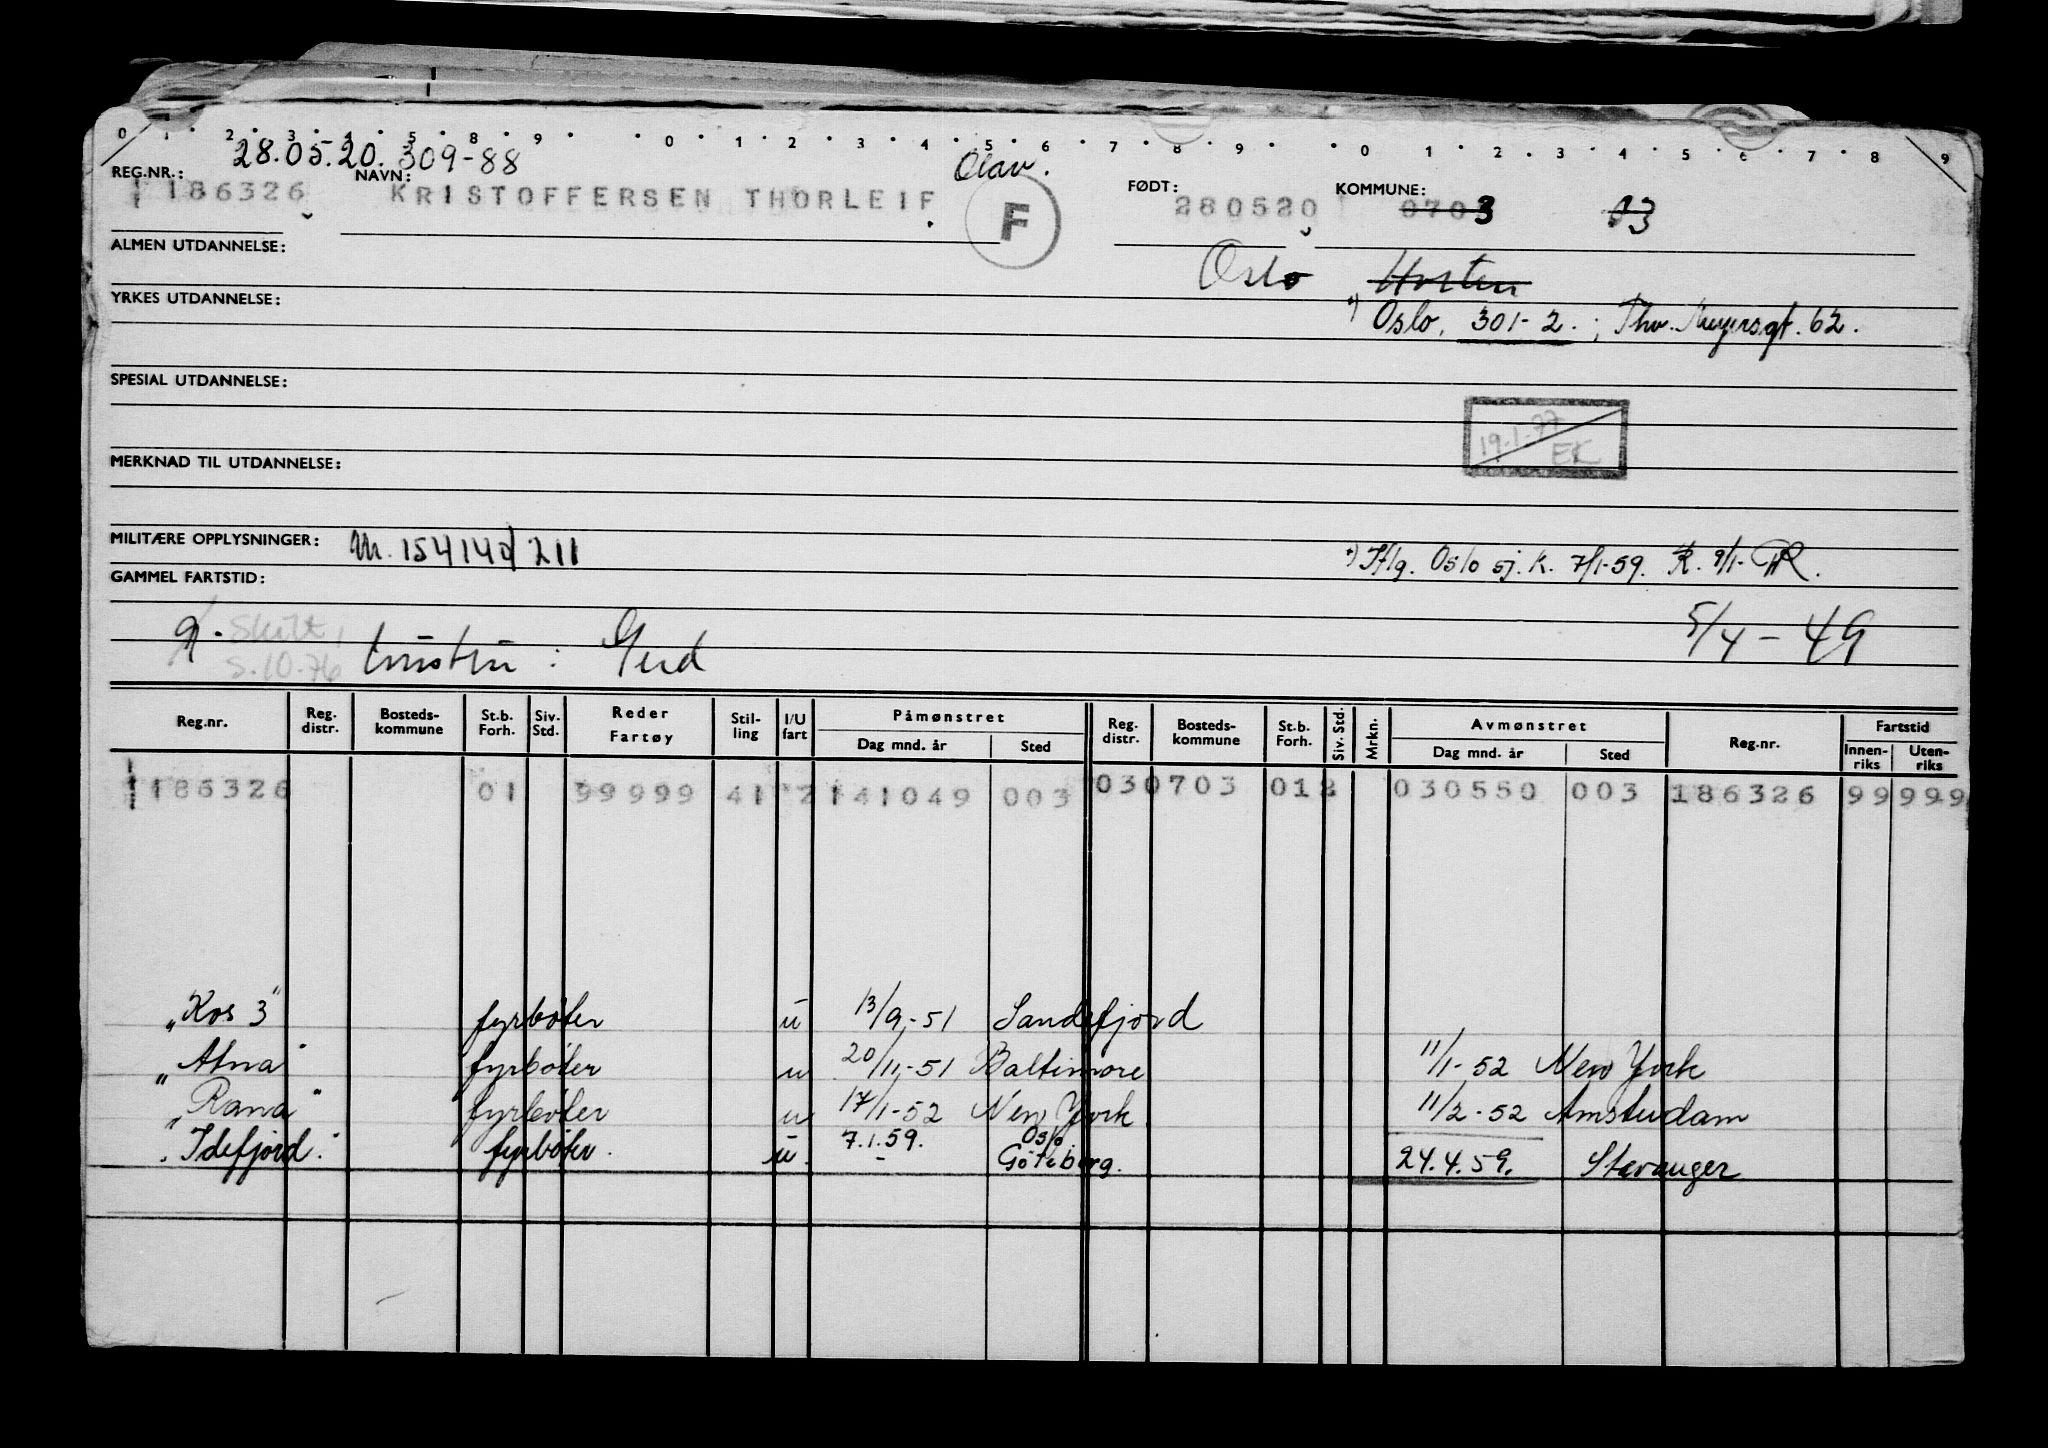 0 1 2 3 4 5 8 9 0 1 2 3 4 5 6 7 8 9 0 1 2 3 4 5 6 7 8 9
28.05.20. 309-88
Olav.
REG.NR.: NAVN: FØDT: KOMMUNE:
186326 KRISTOFFERSEN THORLEIF F 280520 0703 03
ALMEN UTDANNELSE:
Oslo Horten
YRKES UTDANNELSE:
*) Oslo, 301-2. ; Thv. Meyersgt. 62.
SPESIAL UTDANNELSE:
19.1.77 EK
MERKNAD TIL UTDANNELSE:
MILITÆRE OPPLYSNINGER: M. 154140/211
*) Iflg. Oslo sj. k. 7/1-59. R. 9/1-
GAMMEL FARTSTID:
g. Skilt, 5.10.76 : Gerd 5/4 - 49
Reg.nr. Reg. distr. Bosteds-kommune St.b. Forh. Siv. Std. Reder Fartøy Stil-ling I/U fart Påmønstret Dag mnd. år Sted Reg. distr. Bosteds-kommune St.b. Forh. Siv. Std. Mrkn. Avmønstret Dag mnd. år Sted Reg.nr. Fartstid Innen-riks Uten-riks
186326 01 99999 41 2 141049 003 030703 012 030550 003 186326 99 999
"Kos 3" fyrbøter u 13/9-51 Sandefjord
"Atna" fyrbøter u 20/11-51 Baltimore 11/1-52 New York
"Rana" fyrbøter u 17/1-52 New York 11/2-52 Amsterdam
"Idefjord." fyrbøter. u. 7.1.59. Oslo. Göteborg. 24.4.59. Stavanger